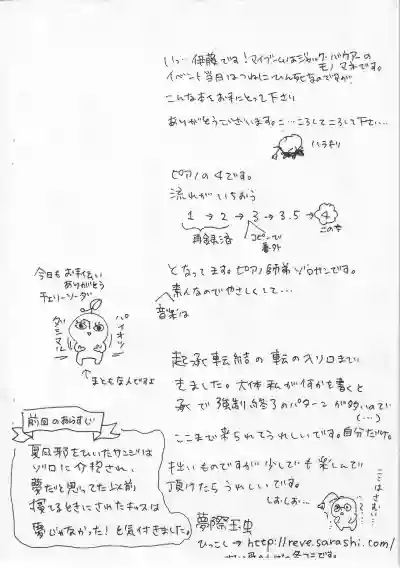 いつ…伊藤です!マイブームはジャック・バウアーの
モノマネです。
イベント当日はつねにひん死なのですが
こんな本をお手にとって下さり
ありがとうございます。こ…ころしてころして下さ…
ハラキリ
ピアノの4です。
流れがいちおう
1→2→3→3.5→4
再録済
コピーで
番外
この本
となってます。ピアノ師弟ゾロサンです。
素人なのでやさしくして…
音楽は
今日もお手伝い
ありがとう
チェリーソーダ
パイオツ
ダニマル
↑まともなんですよ
起承転結の転のソロまで
きました。大体私が何かを書くと
承で強制終了のパターンが多いので
(…)
ここまで来られてうれしいです。自分だけ。
拙いものですが少しでも楽しんで
頂けたらうれしいです。
しおしお…
ここはさむい…
前回のあらすじ
夏風邪をひいたサンジは
ゾロに介抱され、
夢だと思ってた以前
寝てるときにされたキスは
夢じゃなかった!と気付きました。
夢際玉虫
ひっこし→http://reve.sarashi.com/